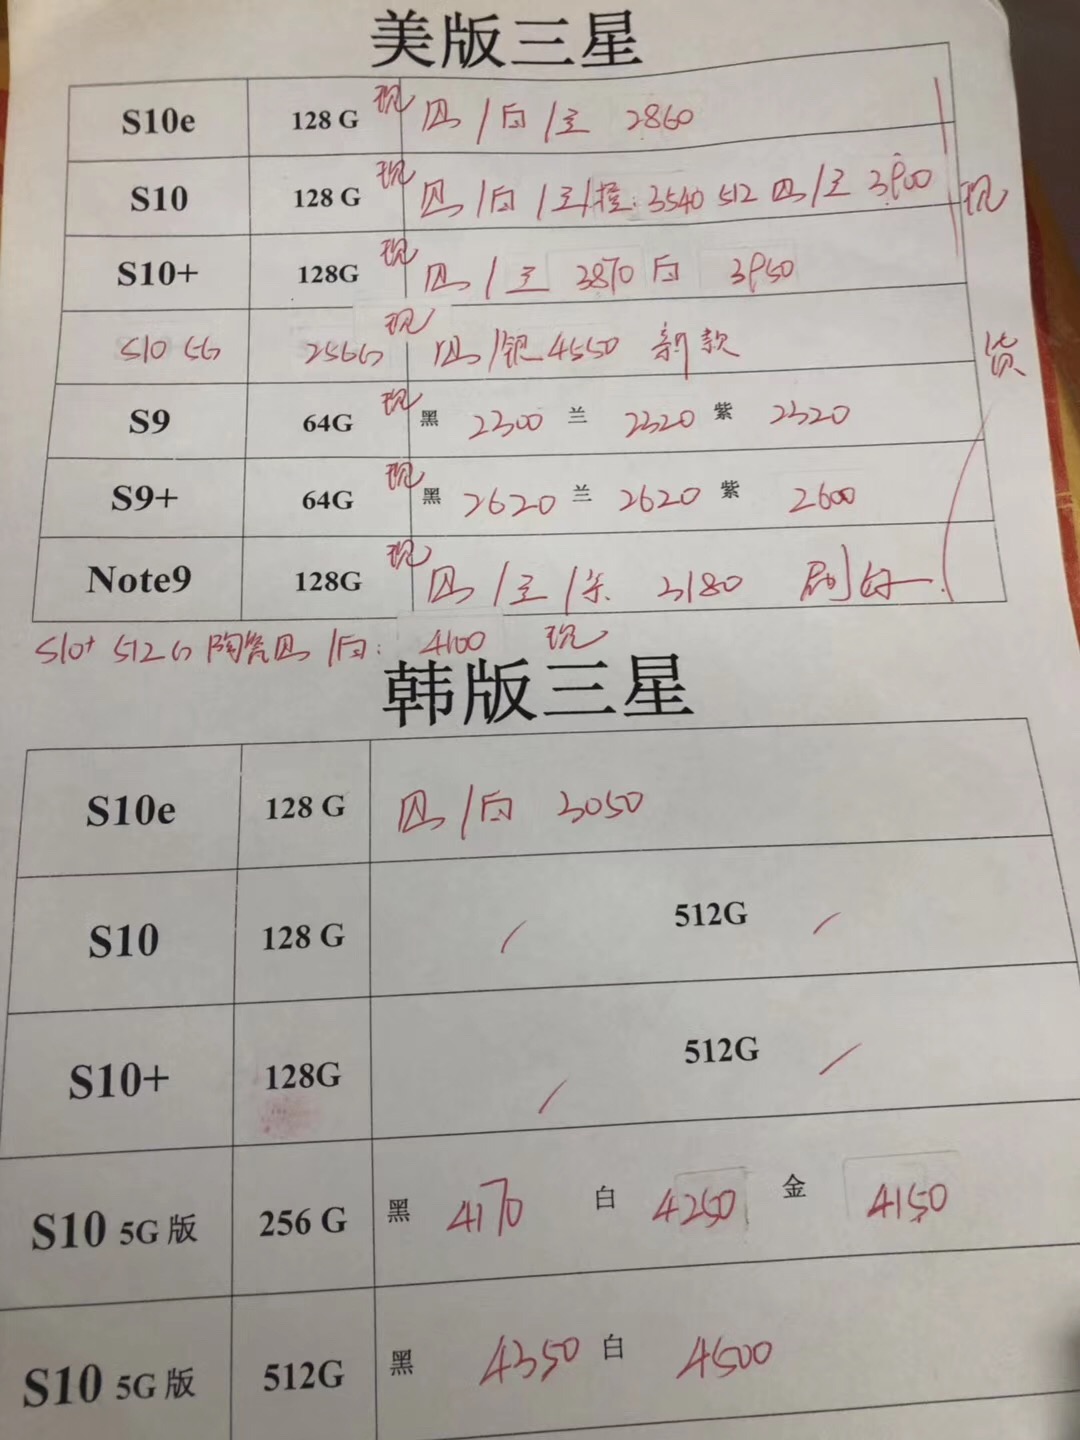 美版三星
S10e 128 G 现 黑/白/兰 2860
S10 128 G 现 黑/白/兰/橙: 3540 512 黑/兰 3900 现
S10+ 128G 现 黑/兰 3870 白 3950
S10 5G 256G 现 黑/银 4550 新款 货
S9 64G 现 黑 2300 兰 2320 紫 2320
S9+ 64G 现 黑 2620 兰 2620 紫 2600
Note9 128G 现 黑/兰/紫 3180 刷好
S10+ 512G 陶瓷黑/白: 4100 现
韩版三星
S10e 128 G 黑/白 3050
S10 128 G / 512G /
S10+ 128G / 512G /
S10 5G 版 256 G 黑 4170 白 4250 金 4150
S10 5G 版 512G 黑 4350 白 4500